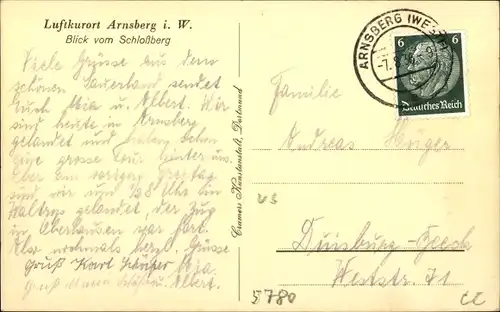 Luftkurort Arnsberg i. W.
Blick vom Schloßberg
Viele Grüsse aus dem
schönen Sauerland sendet
Euch Mia u. Albert. Wir
sind heute in Arnsberg
gelandet und haben schon
eine grosse Tour hinter uns.
Aber am vorigen
sind wir um 1/2 8 Uhr in
Waltrop gelandet, der Zug
in Oberhausen war fort.
Also nochmals herzl. Grüsse
Gruß Karl Mia
Gruß Albert.
Cramers Kunstanstalt, Dortmund
ARNSBERG (WESTF
-7.
6 6
Deutsches Reich
Familie
Andreas
us
Duisburg-Beeck
Weststr. 71
5780